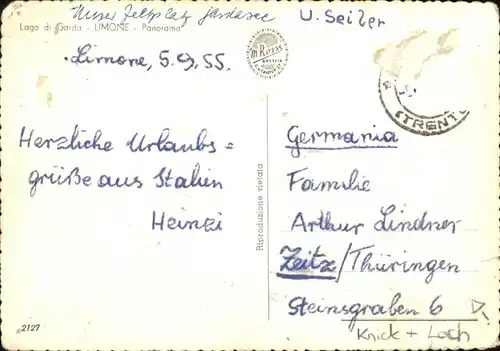 Unser Zeltplatz Gardasee
U. Seiler
Lago di Garda - LIMONE - Panorama
Limone, 5.9.55.
Herzliche Urlaubs=
grüße aus Italien
Heinzi
Riproduzione vietata
TRENTO
Germania
Familie
Arthur Lindner
Zeitz/Thüringen
Steinsgraben 6
Knick + Loch
2127